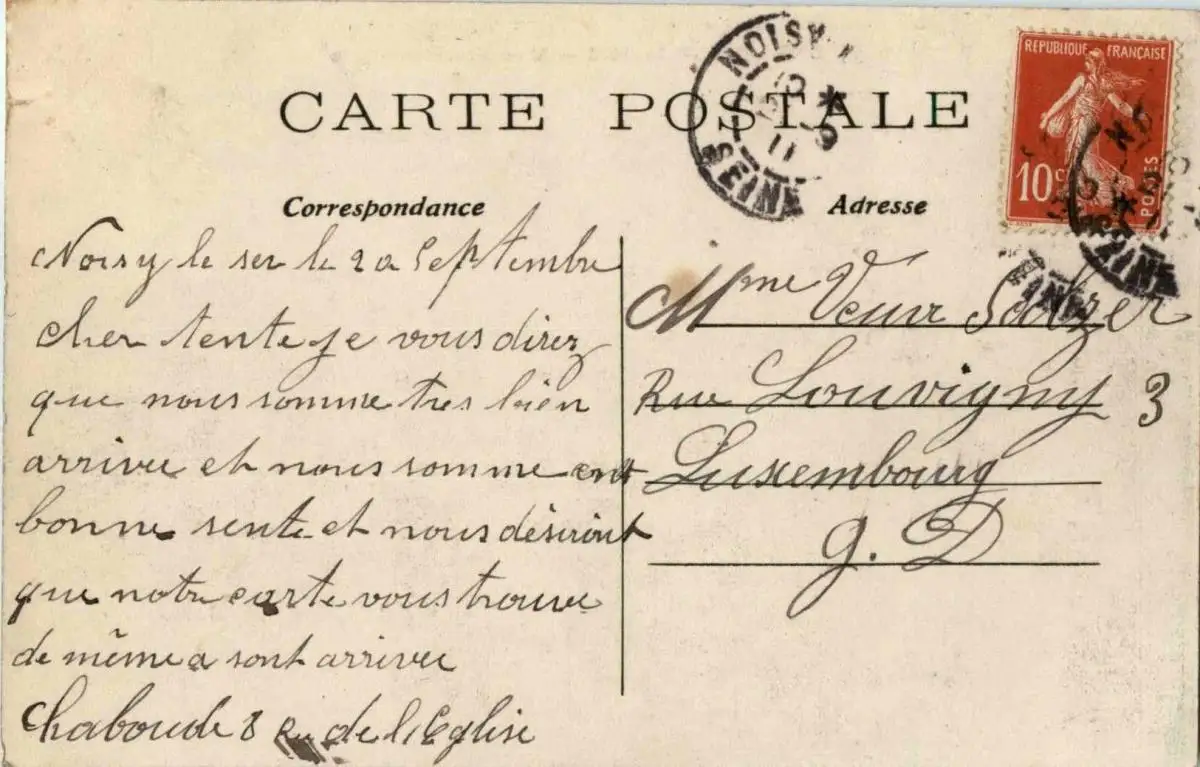 CARTE POSTALE
NOISY
11
SEINE
REPUBLIQUE FRANÇAISE
10c
POSTES
Correspondance
Adresse
Noisy le ser le 20 Septembre
cher tente je vous direz
que nous somme tres bien
arrivee et nous somme ent
bonne sente et nous désiront
que notre carte vous trouve
de même a sont arriver
Chaboude 8 Ru de l'Eglise
Mme Veuve Soltzer
Rue Louvigny 3
Luxembourg
G. D